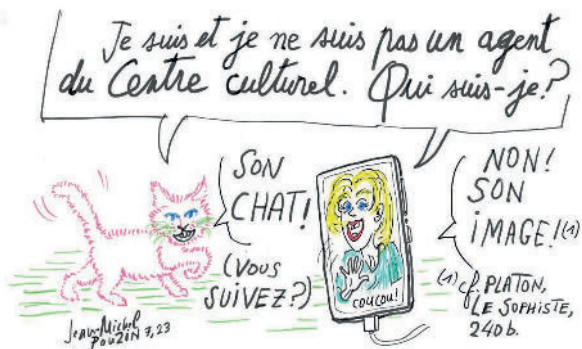 Je suis et je ne suis pas un agent
du Centre culturel. Qui suis-je?
SON
CHAT!
(VOUS
SUIVEZ?)
COUCOU!
NON!
SON
IMAGE!(1)
(1) cf. PLATON,
LE SOPHISTE,
240b.
Jean-Michel
POUZIN 7,23